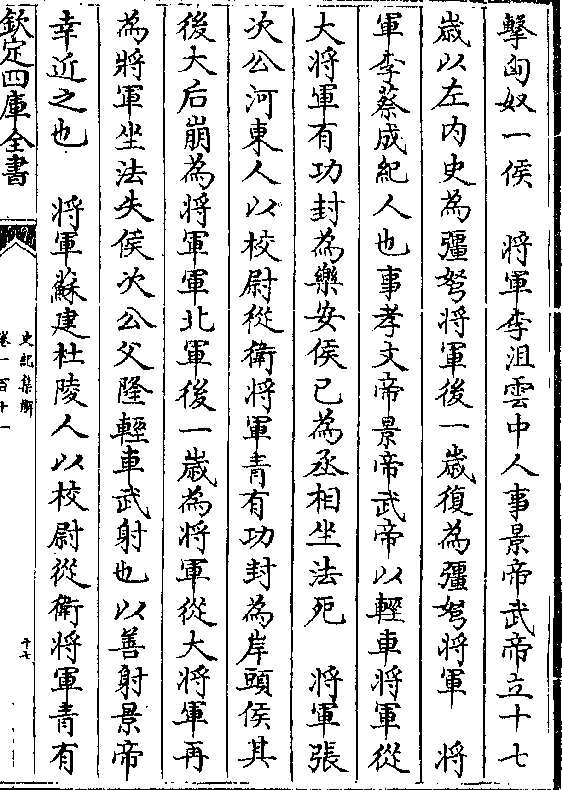 擊匈奴一侯　將軍李沮雲中人事景帝武帝立十七
歲以左内史為彊弩將軍後一歲復為彊弩將軍　將
軍李蔡成紀人也事孝文帝景帝武帝以輕車將軍從
大將軍有功封為樂安侯已為丞相坐法死　將軍張
次公河東人以校尉從衛將軍青有功封為岸頭侯其
後大后崩為將軍軍北軍後一歲為將軍從大將軍再
為將軍坐法失侯次公父隆輕車武射也以善射景帝
幸近之也　將軍蘇建杜陵人以校尉從衛將軍青有
欽定四庫全書
史記集解
卷一百十一
十七